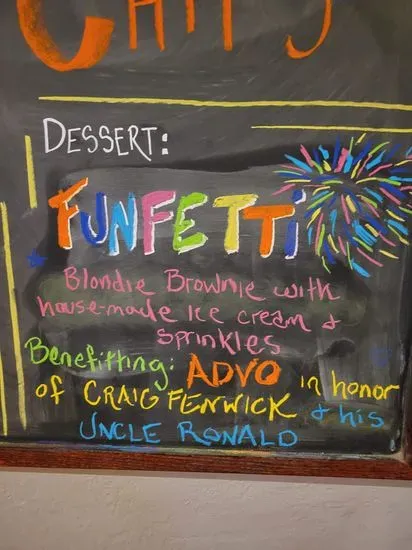 DESSERT:
FUNFETTi
Blondie Brownie with
house-made Ice cream &
sprinkles
Benefitting: ADVO in honor
of CRAIG FENWICK & his
UNCLE RONALD